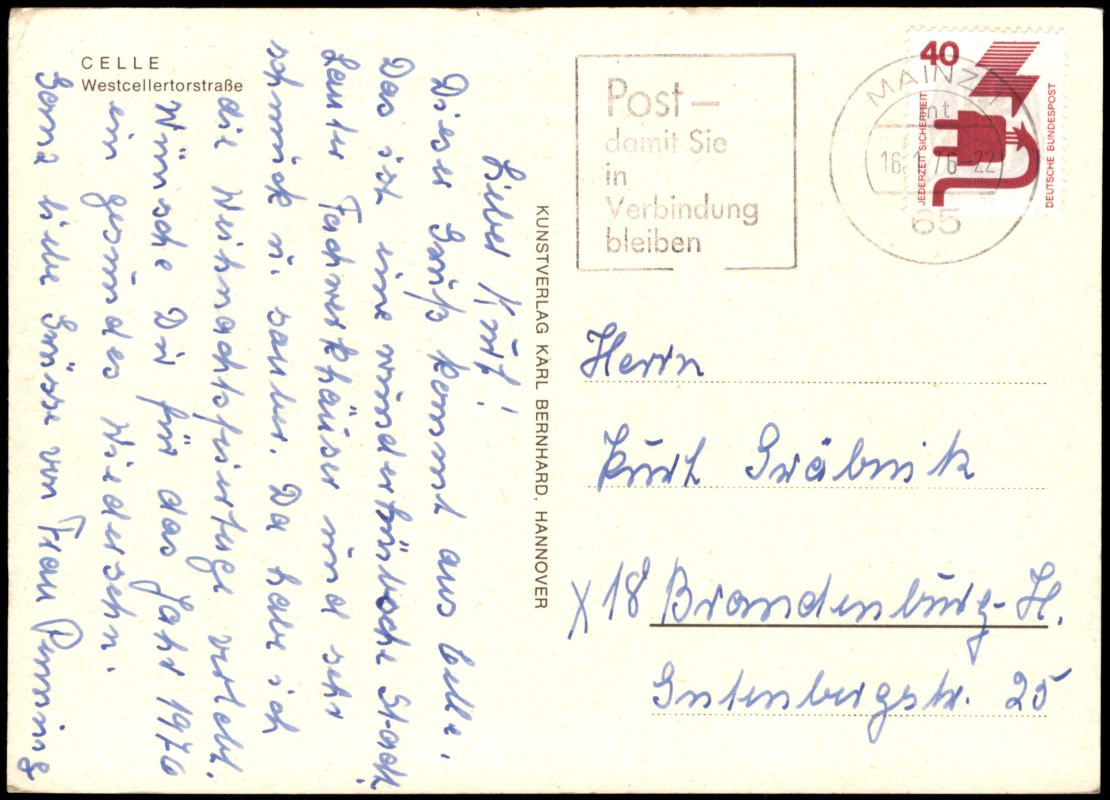 CELLE
Westcellertorstraße
Lieber Kurt!
Dieser Gruß kommt aus Celle.
Das ist eine wunderhübsche Stadt.
Lauter Fachwerkhäuser und sehr
schmuck u. sauber. Da habe ich
die Weihnachtsfeiertage verlebt.
Wünsche Dir für das Jahr 1976
ein gesundes Wiedersehn.
Ganz liebe Grüsse von Frau Pemming
KUNSTVERLAG KARL BERNHARD, HANNOVER
Post –
damit Sie
in
Verbindung
bleiben
MAINZ 1
nt
76-22
65
40
JEDERZEIT SICHERHEIT
DEUTSCHE BUNDESPOST
Herrn
Kurt Gräbnik
X 18 Brandenburg-H.
Gutenbergstr. 25